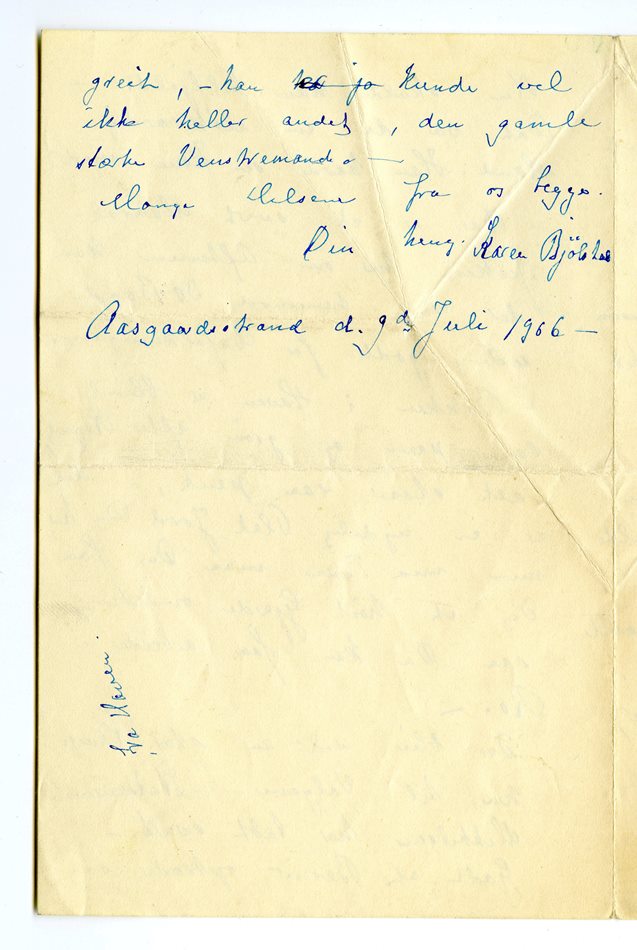 greit, – han ha jo kunde vel
ikke heller andet, den gamle
stærke Venstremand. –
Mange Hilsener fra os begge.
Din heng. Karen Bjölstad
Aasgaardsstrand d. 9de Juli 1906 –